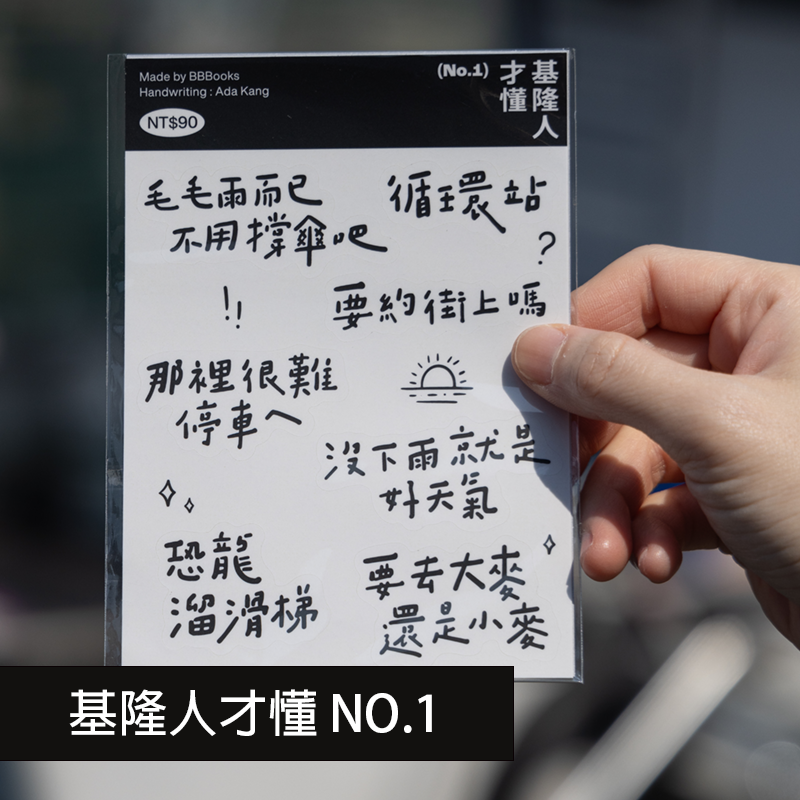 Made by BBBooks
Handwriting : Ada Kang
NT$90
(No.1)
基隆人
才懂
毛毛雨而已
不用撐傘吧
循環站
?
!!
要約街上嗎
那裡很難
停車ㄟ
沒下雨就是
好天氣
恐龍
溜滑梯
要去大麥
還是小麥
基隆人才懂 NO.1